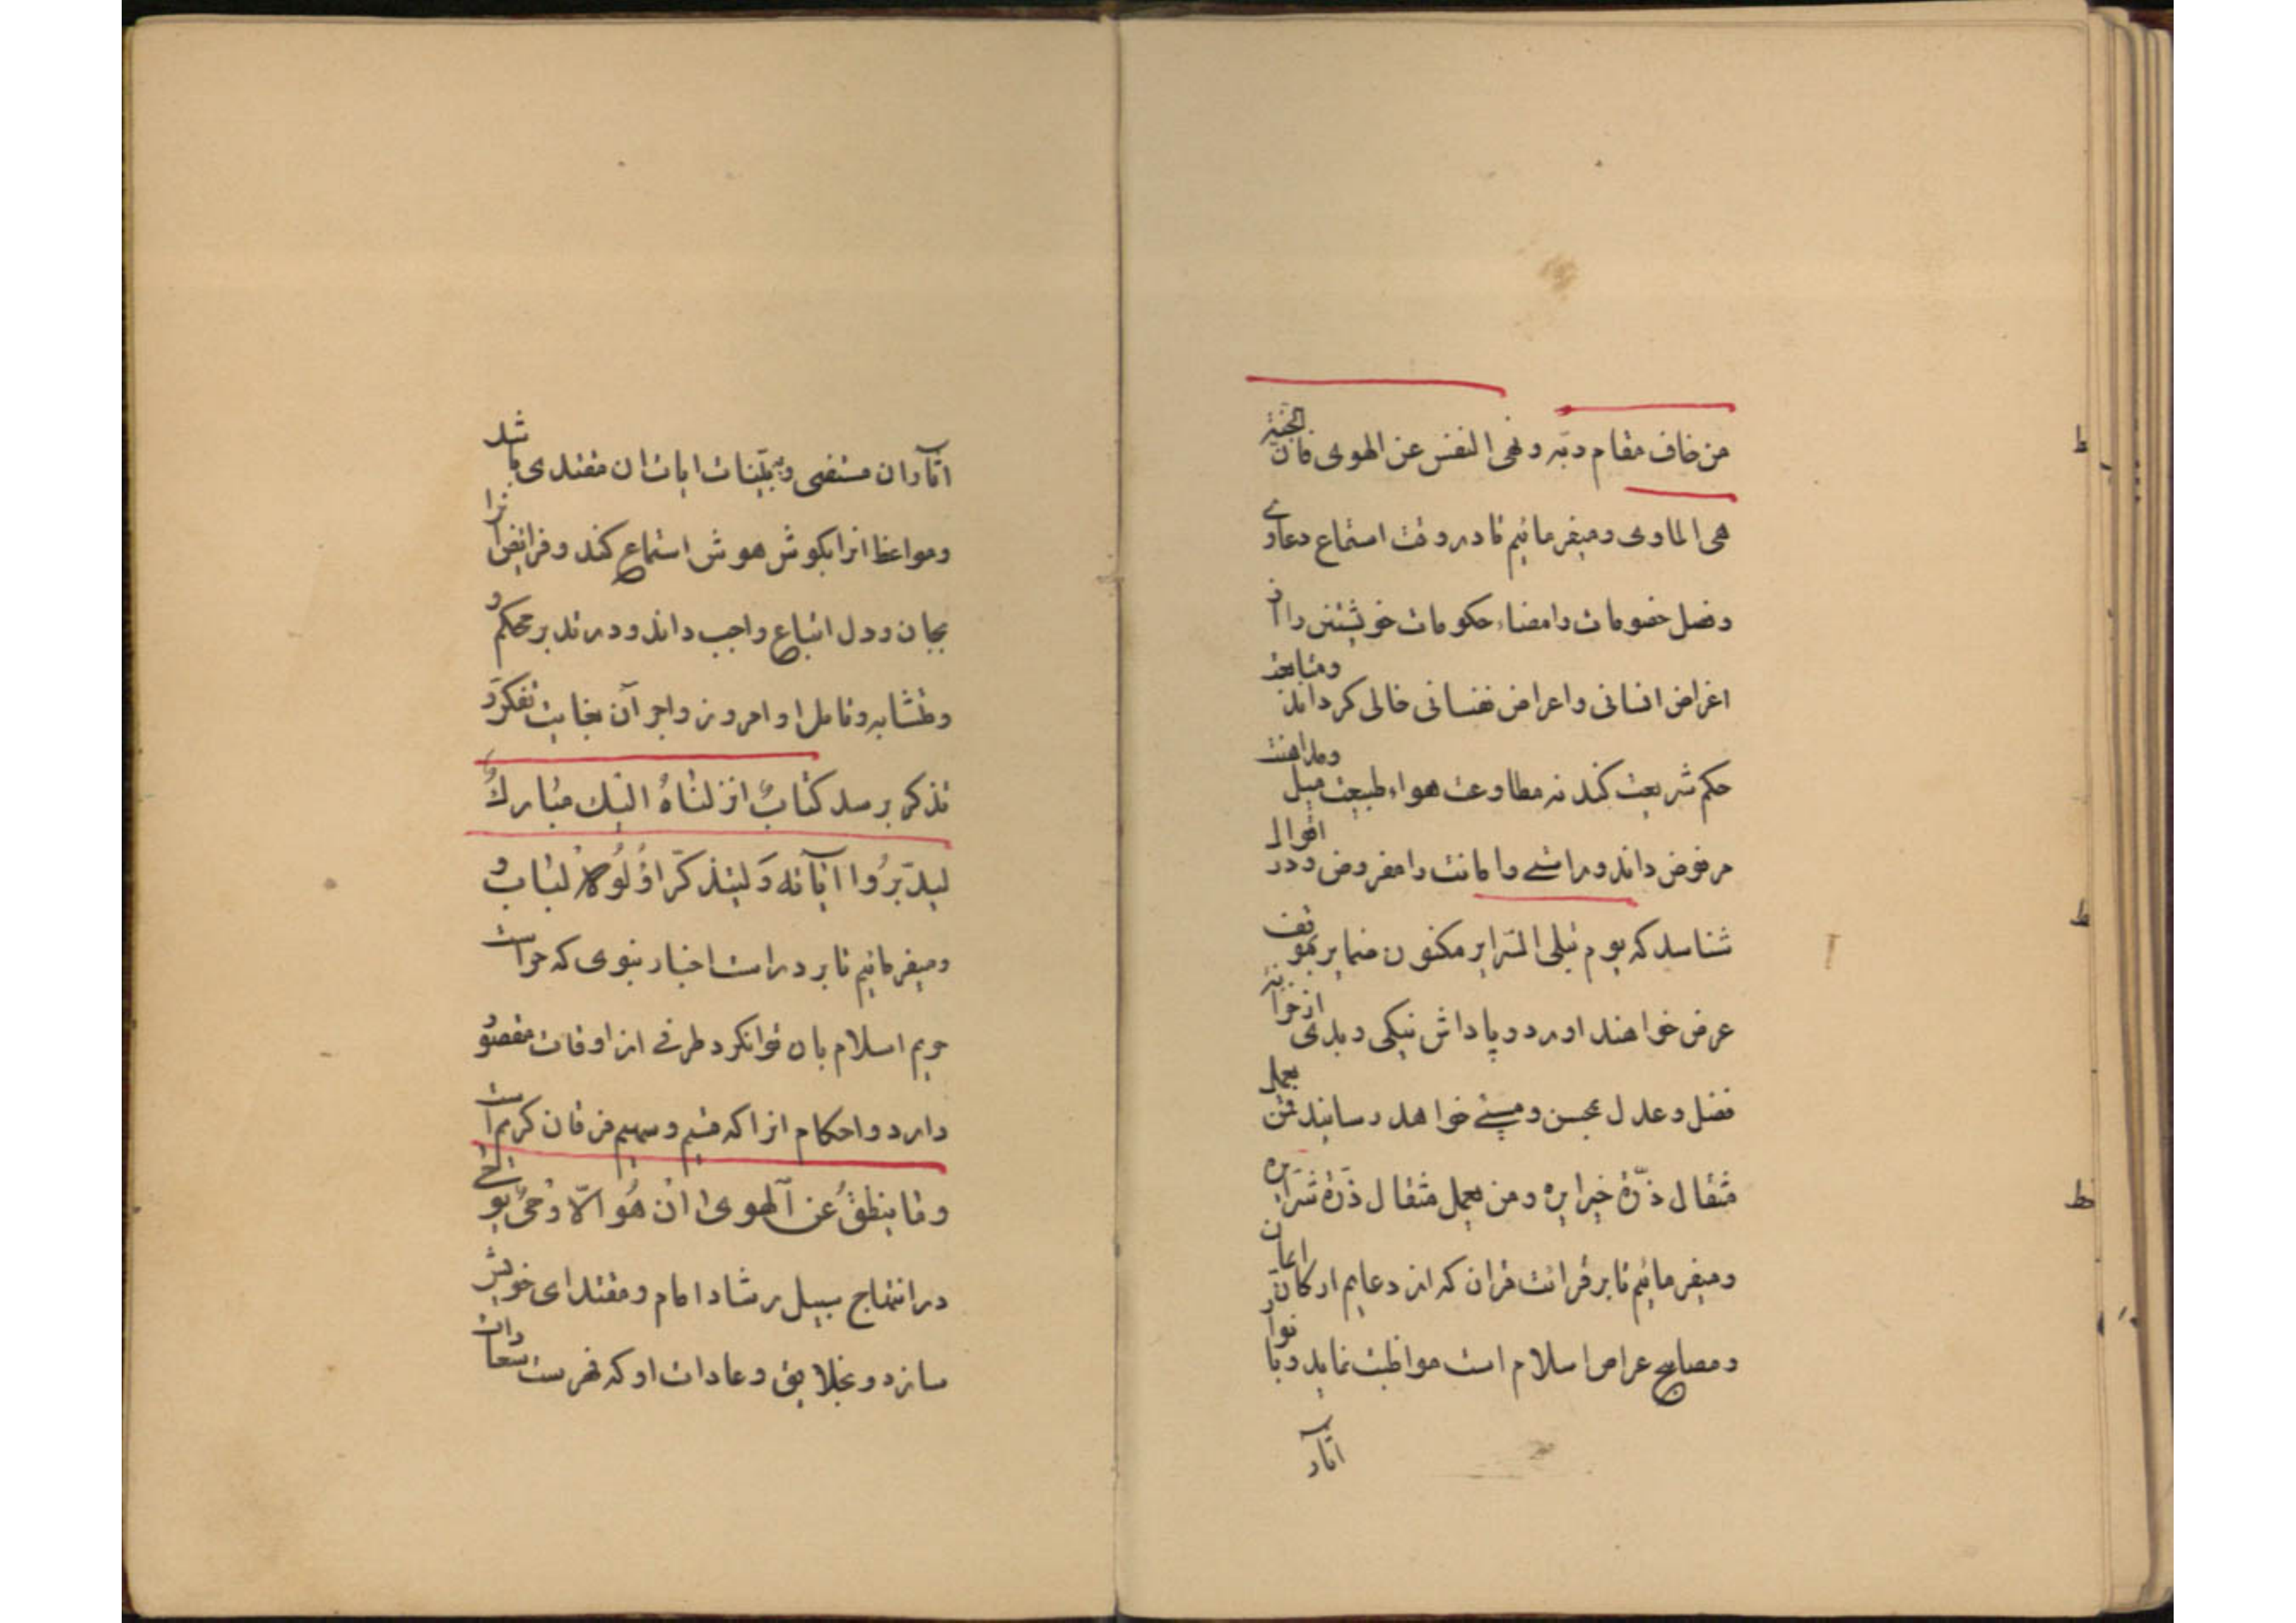 من خاف مقام ربه و نهی النفس عن الهوی فان الجنة
هی الماوی و میفرمائیم تا در وقت استماع دعاوی
و فصل خصومات و امضاء حکومات خویشتن را از
اغراض انسانی و اعراض نفسانی خالی گرداند و متابعت
حکم شریعت کند نه مطاوعت هواء طبیعت میل و مداهنت
مرفوض داند و راستی و امانت را مفروض و در اقوال
شناسد که یوم تبلی السرایر مکنون ضمایر بموقف
عرض خواهند اورد و پاداش نیکی و بدی از خزانه
فضل و عدل بمحسن و مسیئ خواهد رسانید فمن یعمل
مثقال ذرّة خیرا یره و من یعمل مثقال ذرّة شرّا یره
و میفرمائیم تا بر قرائت قران که از دعایم ارکان ایمان
و مصابیح عراص اسلام است مواظبت نماید و بانوار
اثار
اثار ان مستضی و به بیّنات ایات ان مقتدی باشد
و مواعظ انرا بگوش هوش استماع کند و فرائض انرا
بجان و دل اتباع واجب داند و در تدبر محکم و
و متشابه و تامل اوامر و زواجر آن بغایت تفکر و
تذکر برسد کتابٌ انزلناهُ الیک مبارکٌ
لیدّبّرُوا اٰیاته وَ لیتذکّر اُولُوالالباب و
و میفرمائیم تا بر دراست اخبار نبوی که حراست
حریم اسلام بان توان کرد طرفی از اوقات مقصور
دارد و احکام انرا که قسیم و سهیم فرقان کریم است
و ما ینطقُ عن الهوی ان هُو الّا وحیٌ یوحی
در انتهاج سبیل رشاد امام و مقتدای خویش
سازد و بخلایق و عادات او که فهرست سعادات